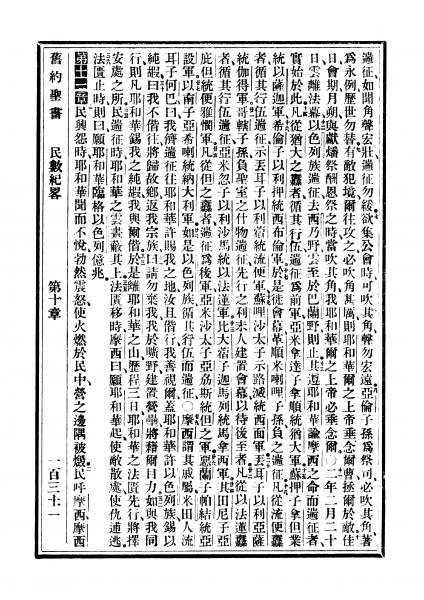 遄征如聞角聲宏壯遄征勿緩欲集公會時可吹其角聲勿宏遠亞倫子孫為祭司必吹其角著
為永例歷世勿替有敵犯境爾往攻之必吹角甚厲則耶和華爾之上帝垂念爾曹拯爾於敵佳
日會期月朔與獻燔祭酬恩祭之時當吹其角我耶和華爾之上帝必垂念爾〇二年二月二十
日雲離法幕以色列族遄征去西乃野雲至於巴蘭野則止其遵耶和華諭摩西之命而遄征者
實始於此凡從猶大之纛者循其行伍遄征為前軍亞米拿達子拿順統猶大軍蘇押子拿但業
統以薩迦軍希倫子以利押統西布倫軍於是徙會幕革順米喇哩子孫負之遄征凡從流便纛
者循其行伍遄征示丟耳子以利宿統流便軍蘇哩沙太子示路滅統西面軍丟耳子以利亞薩
統伽得軍哥轄子孫負聖室之什物遄征先行之利未人建置會幕以待後至者凡從以法蓮纛
者循其行伍遄征亞米忽子以利沙馬統以法蓮軍比大蓿子迦馬列統馬拿西軍其田尼子亞
庇但統便雅憫軍凡從但之纛者遄征為後軍亞米沙太子亞荔斯統但之軍惡蘭子帕結統亞
設軍以南子亞希喇統納大利軍如是以色列族循其行伍而遄征〇摩西謂其戚屬米田人流
耳子何巴曰我儕遄征往耶和華許賜我之地汝且偕行我善視爾蓋耶和華許以色列族錫以
純嘏曰我不偕往將歸故鄉返我宗族曰請勿棄我我於曠野建置營壘將藉爾目力如與我同
行則凡耶和華錫我之純嘏我與爾偕於是離耶和華之山歷程三日耶和華之法匱先行將擇
安處之所民遄征時耶和華之雲晝蔽其上法匱移時摩西曰願耶和華起使敵散處使仇逋逃
法匱止時則曰願耶和華臨格以色列億兆
第十一章民興怨時耶和華聞而不悅勃然震怒使火燃於民中營之邊隅被燬民呼摩西摩西
舊約聖書 民數紀畧 第十章 一百三十一